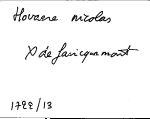 Hovaere nicolas
X de faricquemont
1722/13